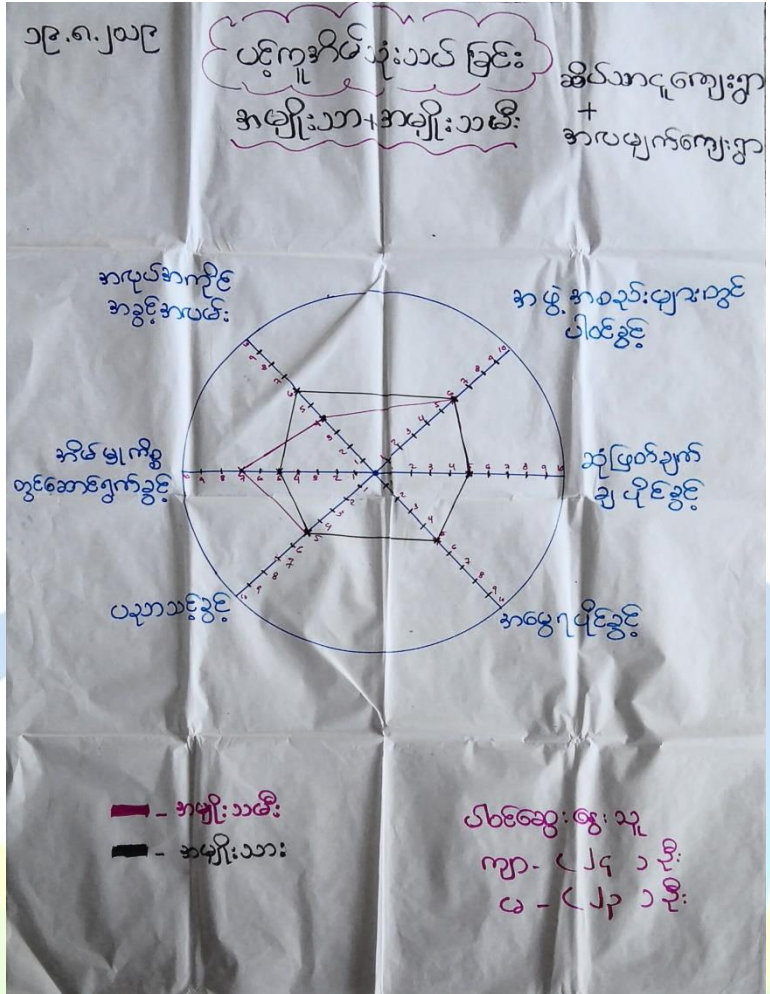 ၁၉.၈.၂၀၁၉
ပင့်ကူအိမ်သုံးသပ်ခြင်း
အမျိုးသာ+အမျိုးသမီး
ဆိပ်သာငူကျေးရွာ
+
အလမျက်ကျေးရွာ
အလုပ်အကိုင်
အခွင့်အလမ်း
အဖွဲ့အစည်းများတွင်
ပါဝင်ခွင့်
အိမ်မှုကိစ္စ
တွင်ဆောင်ရွက်ခွင့်
ဆုံးဖြတ်ချက်
ချပိုင်ခွင့်
ပညာသင့်ခွင့်
အမွေရပိုင်ခွင့်
- အမျိုးသမီး
- အမျိုးသား
ပါဝင်ဆွေးနွေးသူ
ကျာ - ( ၂၄ ) ဦး
မ - ( ၂၃ ) ဦး